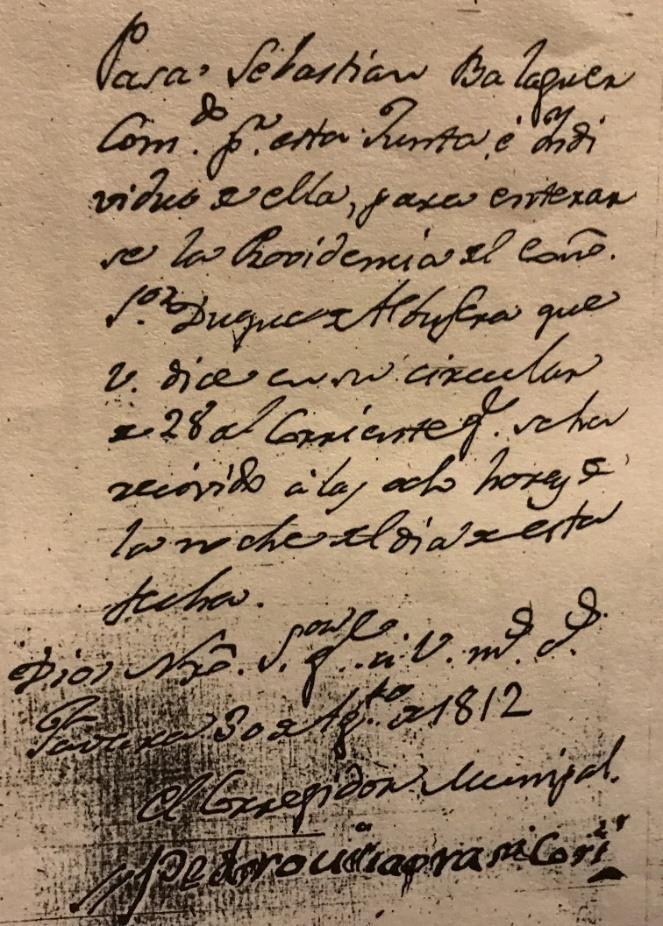 Pasa Sebastian Balaguer
Com.do p.r esta Junta, é Yndi
viduo de ella, para enterar
se la Providencia del Exmô.
S.or Duque de Albufera que
V. dice en su circular
de 28 del Corriente q.e se ha
recivido á las ocho horas de
la noche del dia de esta
fecha.
Dios Nrô. S.or g.e á V. m.s a.s
Tavera 30 de Ag.to de 1812
El Corregidor Municipal.
Pedro